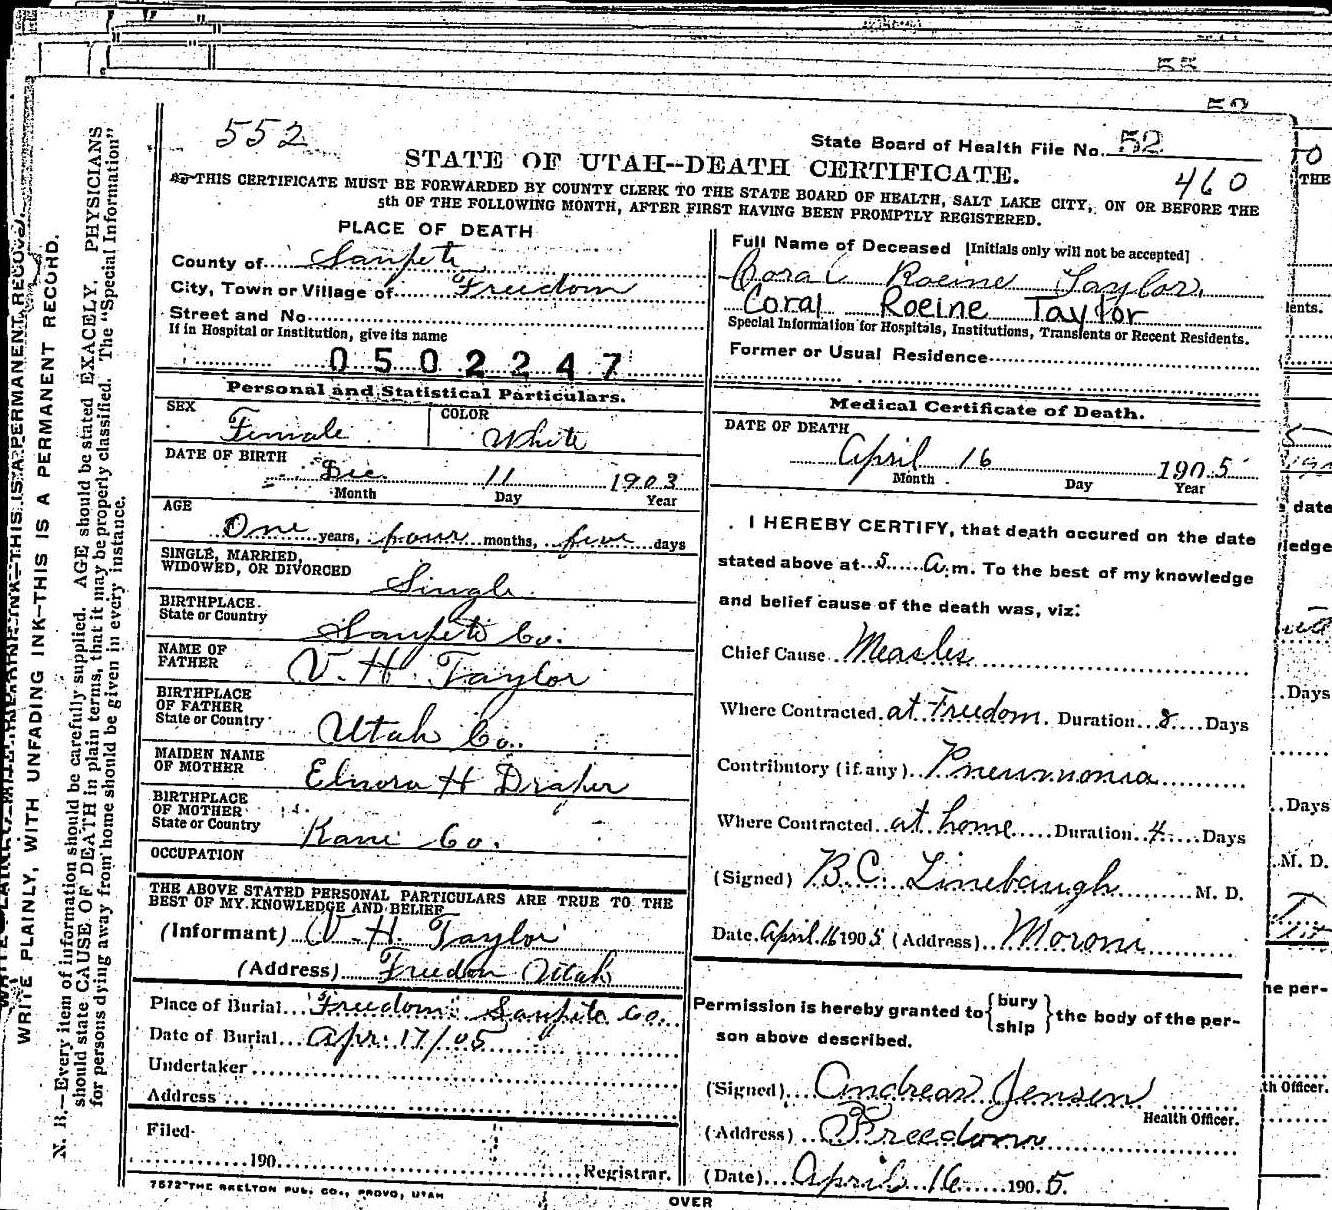 55
52
552
State Board of Health File No. 52
STATE OF UTAH--DEATH CERTIFICATE.
460
THIS CERTIFICATE MUST BE FORWARDED BY COUNTY CLERK TO THE STATE BOARD OF HEALTH, SALT LAKE CITY, ON OR BEFORE THE
5th OF THE FOLLOWING MONTH, AFTER FIRST HAVING BEEN PROMPTLY REGISTERED.
PLACE OF DEATH
County of Sanpete
City, Town or Village of Freedom
Street and No.
If in Hospital or Institution, give its name
0502247
Personal and Statistical Particulars.
SEX
Female
COLOR
White
DATE OF BIRTH
Dec. 11 1903
Month Day Year
AGE
One years, four months, five days
SINGLE, MARRIED,
WIDOWED, OR DIVORCED
Single
BIRTHPLACE.
State or Country
Sanpete Co.
NAME OF
FATHER
V. H. Taylor
BIRTHPLACE
OF FATHER
State or Country
Utah Co.
MAIDEN NAME
OF MOTHER
Elnora H Draper
BIRTHPLACE
OF MOTHER
State or Country
Kane Co.
OCCUPATION
THE ABOVE STATED PERSONAL PARTICULARS ARE TRUE TO THE
BEST OF MY KNOWLEDGE AND BELIEF
(Informant) V. H. Taylor
(Address) Freedom Utah
Place of Burial "Freedom" Sanpete Co.
Date of Burial Apr. 17/05
Undertaker
Address
Filed
190 Registrar.
7572 THE SKELTON PUB. CO., PROVO, UTAH
Full Name of Deceased [Initials only will not be accepted]
Coral Roeine Taylor.
Coral Roeine Taylor
Special Information for Hospitals, Institutions, Transients or Recent Residents.
Former or Usual Residence
Medical Certificate of Death.
DATE OF DEATH
April 16 1905
Month Day Year
I HEREBY CERTIFY, that death occured on the date
stated above at 5 A.m. To the best of my knowledge
and belief cause of the death was, viz:
Chief Cause Measles
Where Contracted at Freedom. Duration 8 Days
Contributory (if any) Pneumonia
Where Contracted at home Duration 4 Days
(Signed) B.C. Linebaugh M. D.
Date April 16 1905 (Address) Moroni
Permission is hereby granted to {bury
ship} the body of the per-
son above described.
(Signed) Andrew Jensen
Health Officer.
(Address) Freedom
(Date) April 16 1905.
OVER
WRITE PLAINLY, WITH UNFADING INK—THIS IS A PERMANENT RECORD.
N. B.—Every item of information should be carefully supplied. AGE should be stated EXACELY. PHYSICIANS
should state CAUSE OF DEATH in plain terms, that it may be properly classified. The "Special Information"
for persons dying away from home should be given in every instance.
THE
ents.
date
ledge
Days
Days
M. D.
he per-
th Officer.